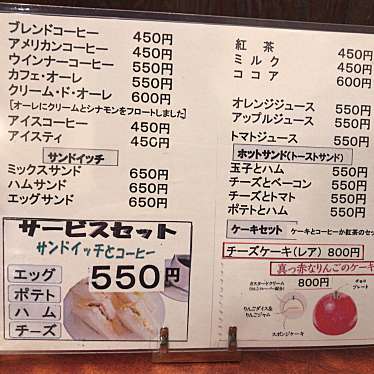 ブレンドコーヒー 450円
アメリカンコーヒー 450円
ウインナーコーヒー 550円
カフェ・オーレ 550円
クリーム・ド・オーレ 600円
[オーレにクリームとシナモンをフロートしました]
アイスコーヒー 450円
アイスティ 450円
サンドイッチ
ミックスサンド 650円
ハムサンド 650円
エッグサンド 650円
サービスセット
サンドイッチとコーヒー
550円
エッグ
ポテト
ハム
チーズ
紅茶 450円
ミルク 450円
ココア 600円
オレンジジュース 550円
アップルジュース 550円
トマトジュース 550円
ホットサンド(トーストサンド)
玉子とハム 550円
チーズとベーコン 550円
チーズとトマト 550円
ポテトとハム 550円
ケーキセット ケーキとコーヒーか紅茶のセッ
チーズケーキ(レア) 800円
真っ赤なりんごのケーキ
800円
カスタードクリーム
りんごダイス&
りんごジャム
スポンジケーキ
チョコ
プレート